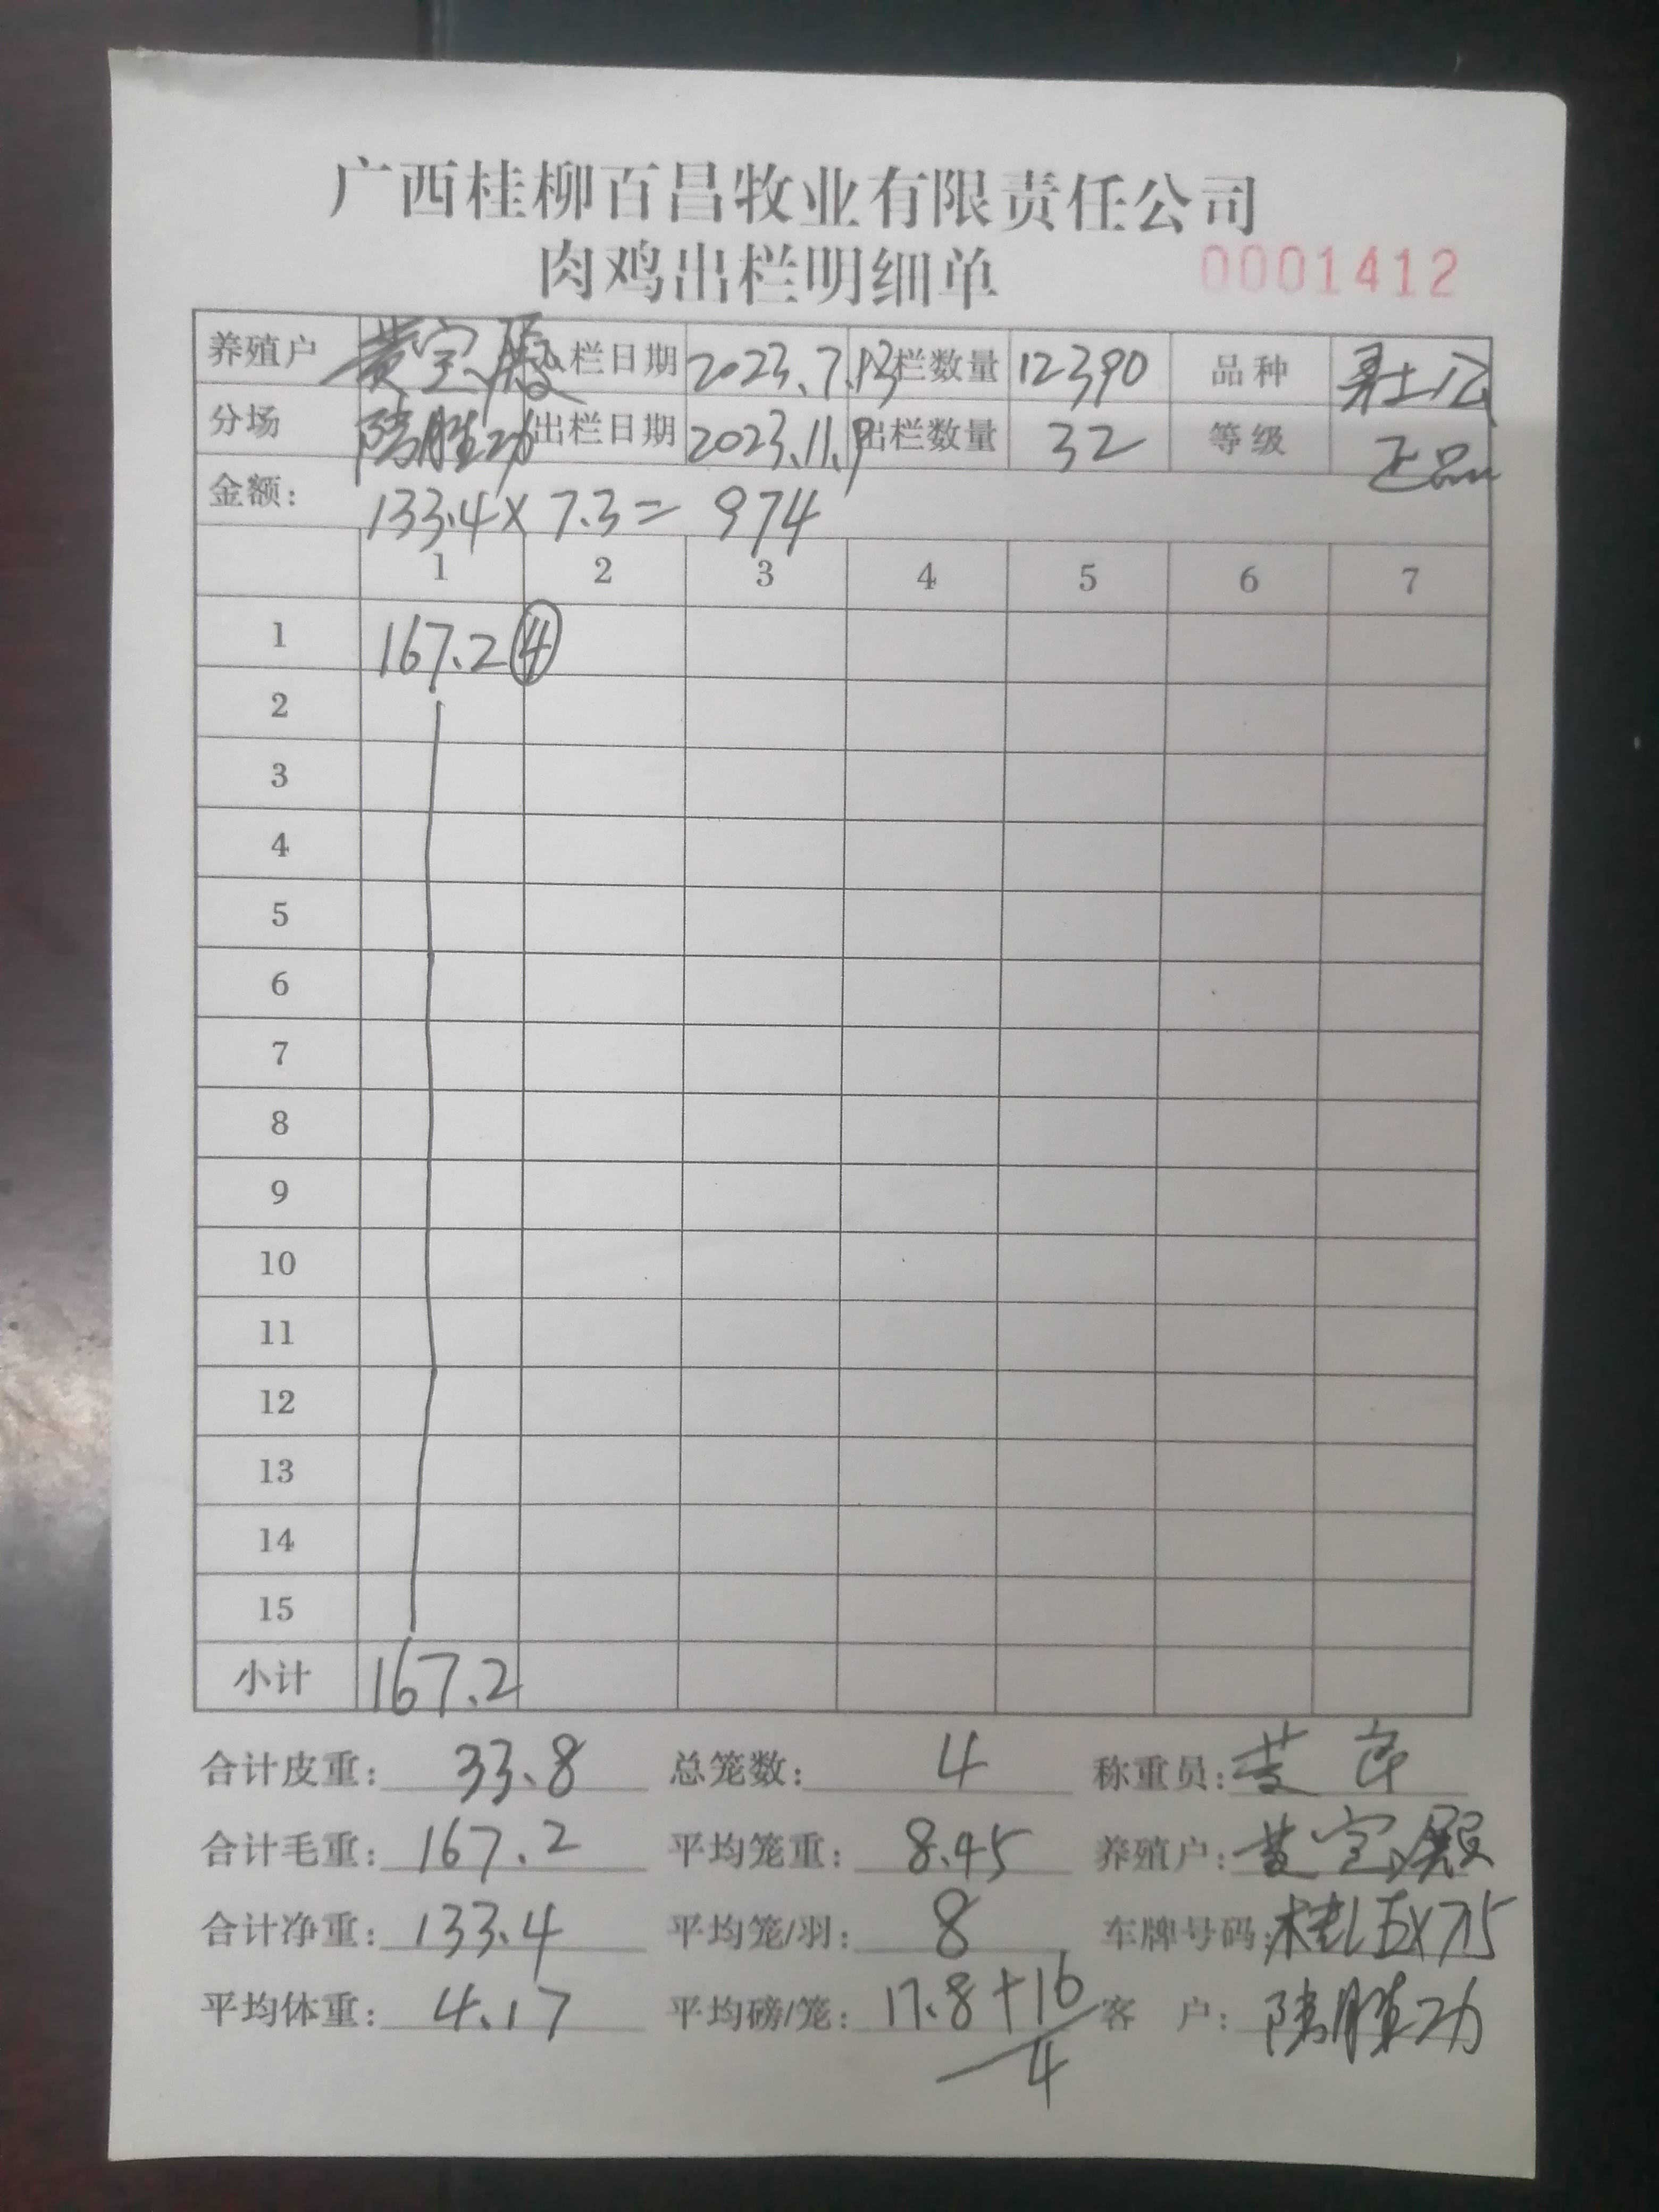 广西桂柳百昌牧业有限责任公司
肉鸡出栏明细单 0001412
养殖户 黄宝殿 入栏日期 2023.7.13 入栏数量 12390 品种 勇士公
分场 陆胜功 出栏日期 2023.11.9 出栏数量 32 等级 正品
金额: 133.4×7.3=974
1 2 3 4 5 6 7
1 167.2 ④
2
3
4
5
6
7
8
9
10
11
12
13
14
15
小计 167.2
合计皮重: 33.8 总笼数: 4 称重员: 黄
合计毛重: 167.2 平均笼重: 8.45 养殖户: 黄宝殿
合计净重: 133.4 平均笼/羽: 8 车牌号码: 桂L
平均体重: 4.17 平均磅/笼: 17.8+16/4 客 户: 陆胜功